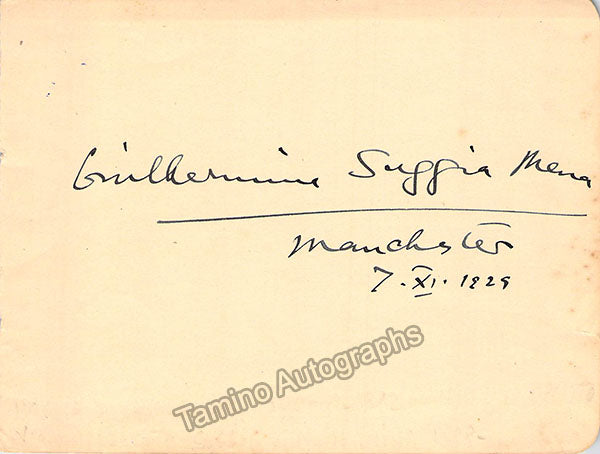 Guilhermina Suggia Mena
Manchester
7.XI.1929
Tamino Autographs